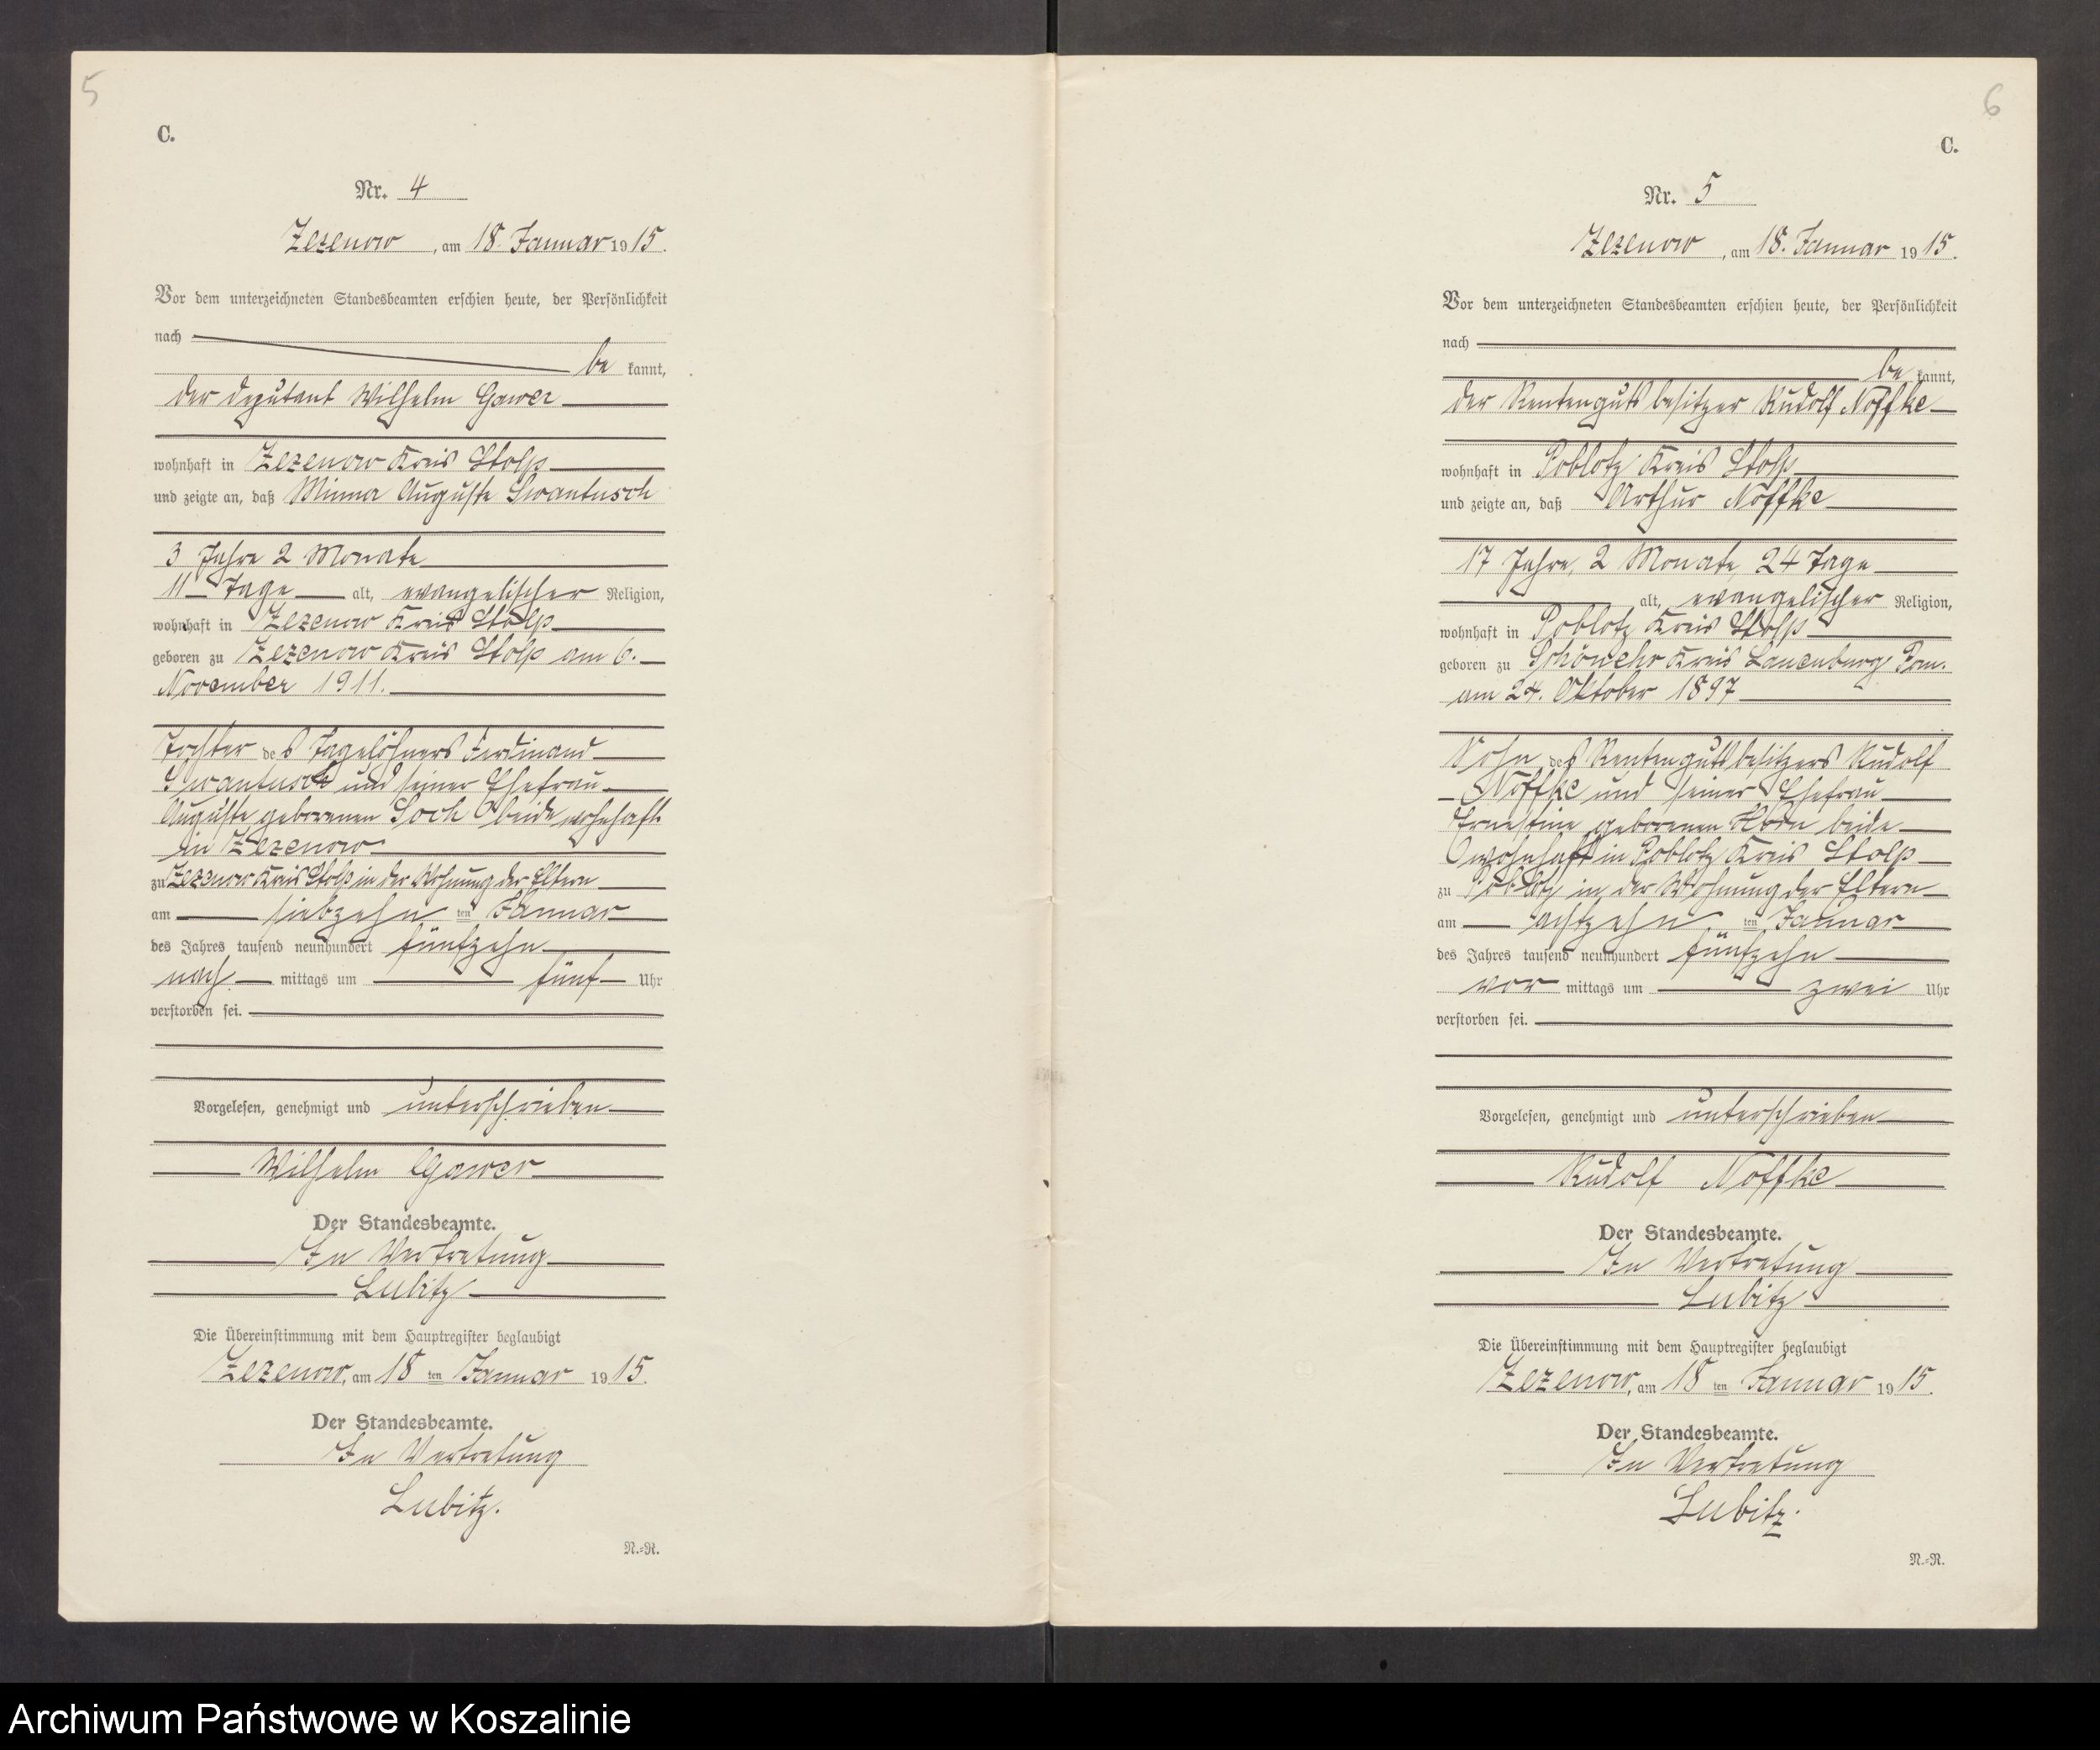 5
C.
Nr. 4
Zezenow, am 18. Januar 1915.
Vor dem unterzeichneten Standesbeamten erschien heute, der Persönlichkeit
nach
be kannt,
der Deputant Wilhelm Gawer
wohnhaft in Zezenow Kreis Stolp
und zeigte an, daß Minna Auguste Swantusch
3 Jahre 2 Monate
11 Tage alt, evangelischer Religion,
wohnhaft in Zezenow Kreis Stolp
geboren zu Zezenow Kreis Stolp am 6.
November 1911.
Tochter des Tagelöhners Ferdinand
Swantusch und seiner Ehefrau
Auguste geborenen Soch beide wohnhaft
in Zezenow
zu Zezenow Kreis Stolp in der Wohnung der Eltern
am siebzehn ten Januar
des Jahres tausend neunhundert fünfzehn
nach mittags um fünf Uhr
verstorben sei.
Vorgelesen, genehmigt und unterschrieben
Wilhelm Gawer
Der Standesbeamte.
In Vertretung
Lubitz
Die Übereinstimmung mit dem Hauptregister beglaubigt
Zezenow, am 18 ten Januar 1915.
Der Standesbeamte.
In Vertretung
Lubitz.
N.-R.
6
C.
Nr. 5
Zezenow, am 18. Januar 1915.
Vor dem unterzeichneten Standesbeamten erschien heute, der Persönlichkeit
nach
be kannt,
der Rentengutsbesitzer Rudolf Noffke
wohnhaft in Poblotz Kreis Stolp
und zeigte an, daß Arthur Noffke
17 Jahre, 2 Monate 24 Tage
alt, evangelischer Religion,
wohnhaft in Poblotz Kreis Stolp
geboren zu Schönehr Kreis Lauenburg Pom.
am 24. Oktober 1897
Sohn des Rentengutsbesitzers Rudolf
Noffke und seiner Ehefrau
Ernestine geborenen beide
wohnhaft in Poblotz Kreis Stolp
zu Poblotz in der Wohnung der Eltern
am achtzehn ten Januar
des Jahres tausend neunhundert fünfzehn
vor mittags um zwei Uhr
verstorben sei.
Vorgelesen, genehmigt und unterschrieben
Rudolf Noffke
Der Standesbeamte.
In Vertretung
Lubitz
Die Übereinstimmung mit dem Hauptregister beglaubigt
Zezenow, am 18 ten Januar 1915.
Der Standesbeamte.
In Vertretung
Lubitz.
N.-R.
Archiwum Państwowe w Koszalinie